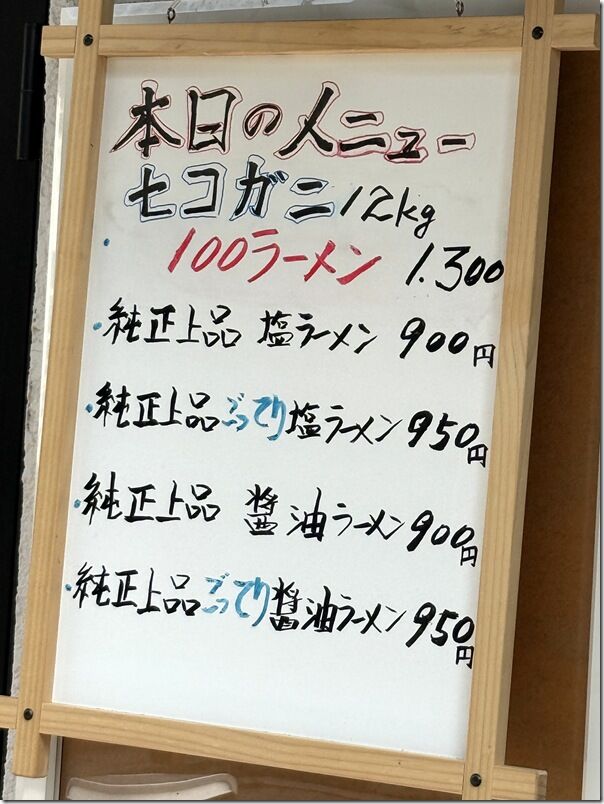 本日のメニュー
セコガニ12kg
・100ラーメン 1.300
・純正上品 塩ラーメン 900円
・純正上品こってり塩ラーメン 950円
・純正上品 醤油ラーメン 900円
・純正上品こってり醤油ラーメン 950円